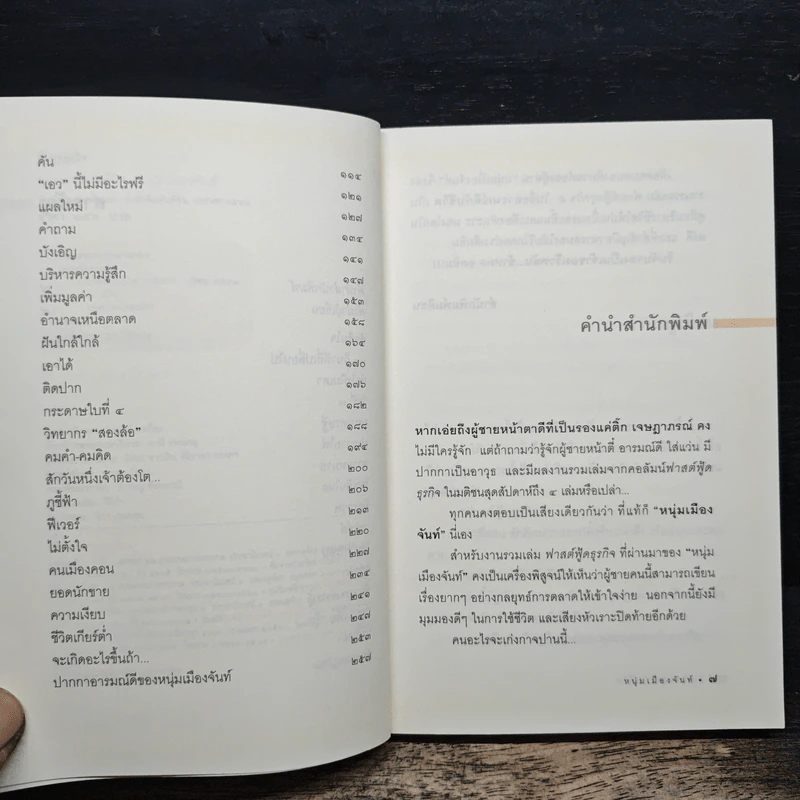 คัน ๑๑๔
“เอว” นี้ไม่มีอะไรฟรี ๑๒๑
แผลใหม่ ๑๒๗
คำถาม ๑๓๔
บังเอิญ ๑๔๑
บริหารความรู้สึก ๑๔๗
เพิ่มมูลค่า ๑๕๓
อำนาจเหนือตลาด ๑๕๘
ฝันใกล้ใกล้ ๑๖๔
เอาได้ ๑๗๐
ติดปาก ๑๗๖
กระดาษใบที่ ๔ ๑๘๒
วิทยากร “สองล้อ” ๑๘๘
คมคำ-คมคิด ๑๙๔
สักวันหนึ่งเจ้าต้องโต... ๒๐๐
ภูชี้ฟ้า ๒๐๖
ฟีเวอร์ ๒๑๓
ไม่ตั้งใจ ๒๒๐
คนเมืองคอน ๒๒๗
ยอดนักขาย ๒๓๔
ความเงียบ ๒๔๑
ชีวิตเกียร์ต่ำ ๒๔๗
จะเกิดอะไรขึ้นถ้า... ๒๕๓
ปากกาอารมณ์ดีของหนุ่มเมืองจันท์ ๒๕๗
คำนำสำนักพิมพ์
หากเอ่ยถึงผู้ชายหน้าตาดีที่เป็นรองแค่ติ๊ก เจษฎาภรณ์ คง
ไม่มีใครรู้จัก แต่ถ้าถามว่ารู้จักผู้ชายหน้าตี๋ อารมณ์ดี ใส่แว่น มี
ปากกาเป็นอาวุธ และมีผลงานรวมเล่มจากคอลัมน์ฟาสต์ฟู้ด
ธุรกิจ ในมติชนสุดสัปดาห์ถึง ๔ เล่มหรือเปล่า...
ทุกคนคงตอบเป็นเสียงเดียวกันว่า ที่แท้ก็ “หนุ่มเมือง
จันท์” นี่เอง
สำหรับงานรวมเล่ม ฟาสต์ฟู้ดธุรกิจ ที่ผ่านมาของ “หนุ่ม
เมืองจันท์” คงเป็นเครื่องพิสูจน์ให้เห็นว่าผู้ชายคนนี้สามารถเขียน
เรื่องยากๆ อย่างกลยุทธ์การตลาดให้เข้าใจง่าย นอกจากนี้ยังมี
มุมมองดีๆ ในการใช้ชีวิต และเสียงหัวเราะปิดท้ายอีกด้วย
คนอะไรจะเก่งกาจปานนี้...
หนุ่มเมืองจันท์ • ๗